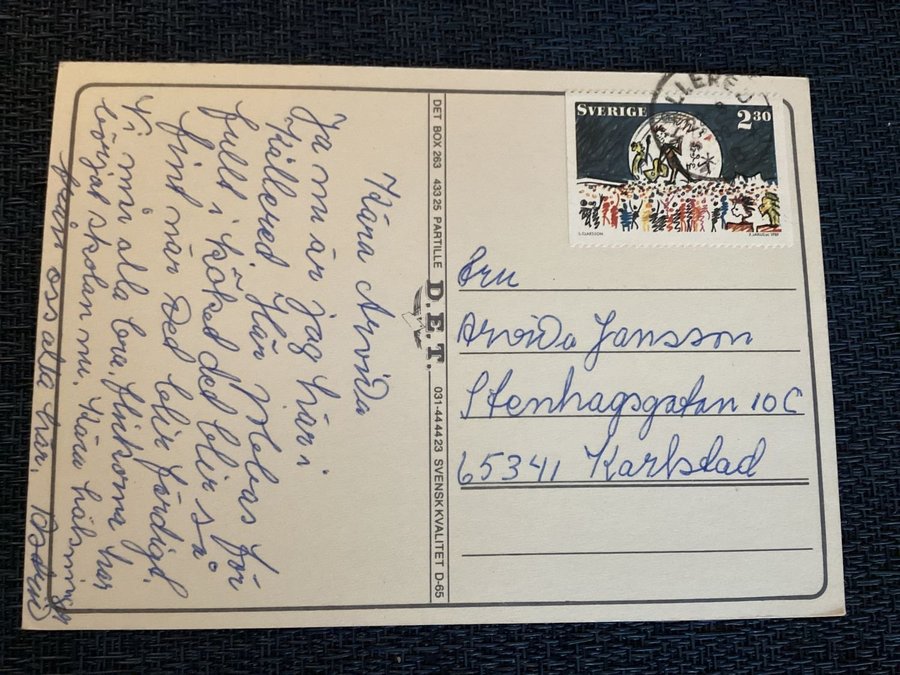 Kära Arvida
Ja nu är jag här i
Kållered. Här jobbas för
fullt i köket det blir så
fint när det blir färdigt.
Vi mår alla bra, flickorna har
börjat skolan nu. Kära hälsningar
från oss alla här.
DET BOX 263 433 25 PARTILLE
D.E.T.
031-44 44 23 SVENSK KVALITET D-65
SVERIGE 2.30
LLERED
Fru
Arvida Jansson
Stenhagsgatan 10C
65341 Karlstad